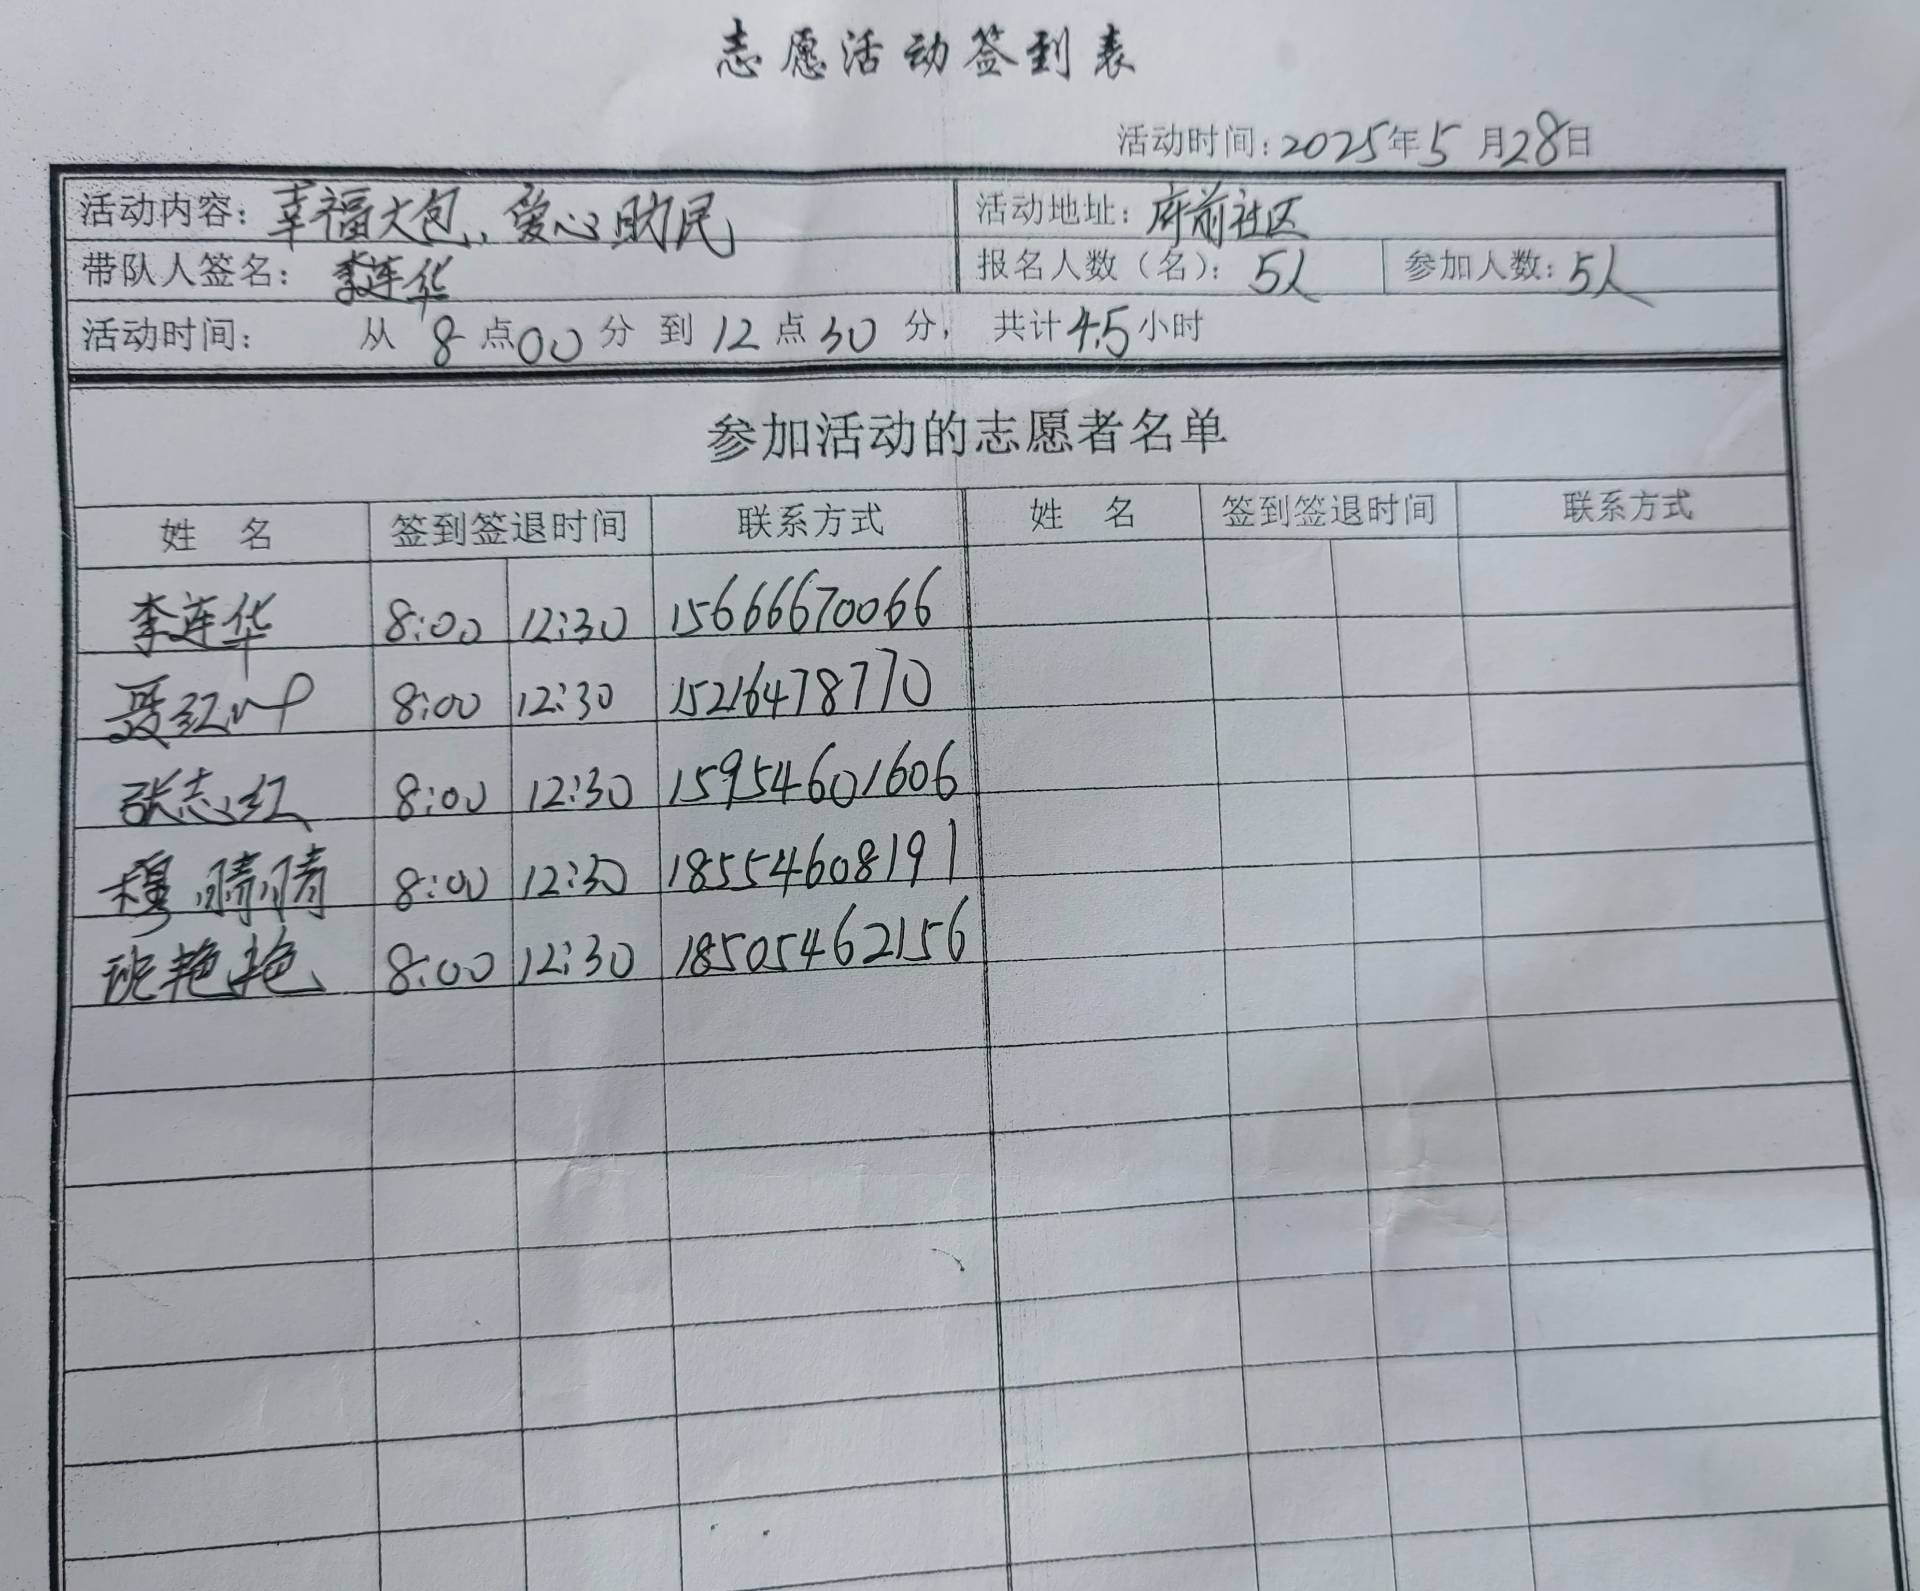 志愿活动签到表
活动时间:2025年5月28日
活动内容:幸福大包、爱心助民 活动地址:府前社区
带队人签名:李连华 报名人数(名):5人 参加人数:5人
活动时间: 从8点00分到12点30分, 共计4.5小时
参加活动的志愿者名单
姓 名 签到签退时间 联系方式 姓 名 签到签退时间 联系方式
李连华 8:00 12:30 15666670066
聂红叶 8:00 12:30 15216478770
张志红 8:00 12:30 15954601606
穆晴晴 8:00 12:30 18554608191
班艳艳 8:00 12:30 18505462156